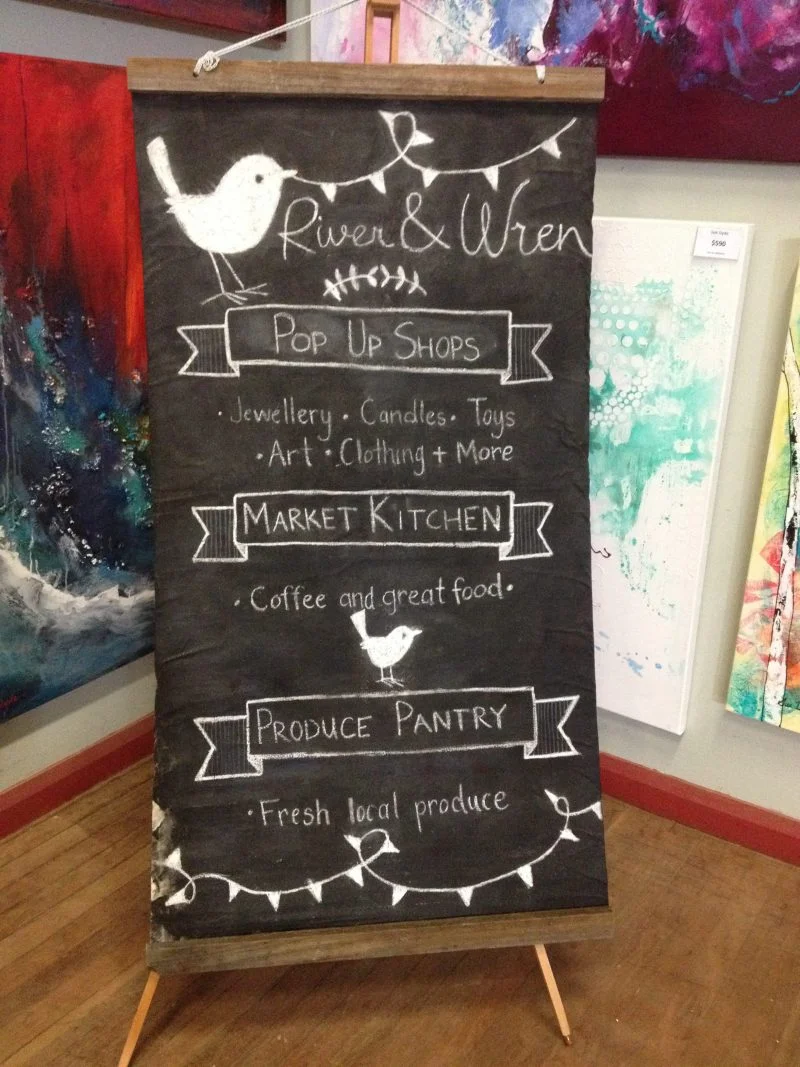 River & Wren
POP UP SHOPS
· Jewellery · Candles · Toys
· Art · Clothing + More
MARKET KITCHEN
· Coffee and great food ·
PRODUCE PANTRY
· Fresh local produce
$590